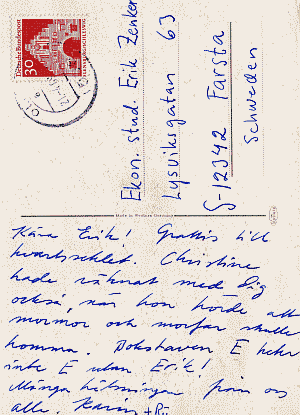 Deutsche Bundespost
30
Ekon. stud. Erik Zenker
Lysviksgatan 63
S-12342 Farsta
Schweden
Kära Erik! Grattis till
kvartsseklet. Christine
hade räknat med Dig
också, när hon hörde att
mormor och morfar skulle
komma. Bokstaven E heter
inte E utan Erik!
Många hälsningar från oss
alla. Karin +